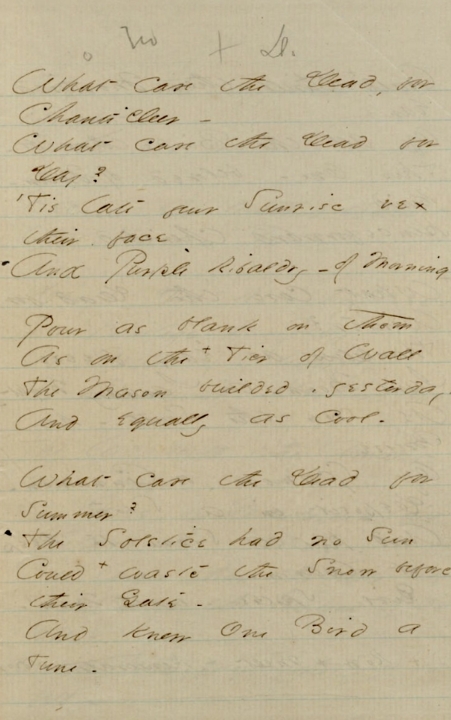 o No + L.
What care the Dead, for
Chanticleer -
What care the Dead for
Day?
'Tis late your Sunrise vex
their face
And Purple Ribaldry - of Morning
Pour as blank on them
As on the + Tier of Wall
The Mason builded, yesterday,
And equally as cool.
What care the Dead for
Summer?
The Solstice had no Sun
Could + waste the Snow before
their Gate -
And knew One Bird a
Tune -